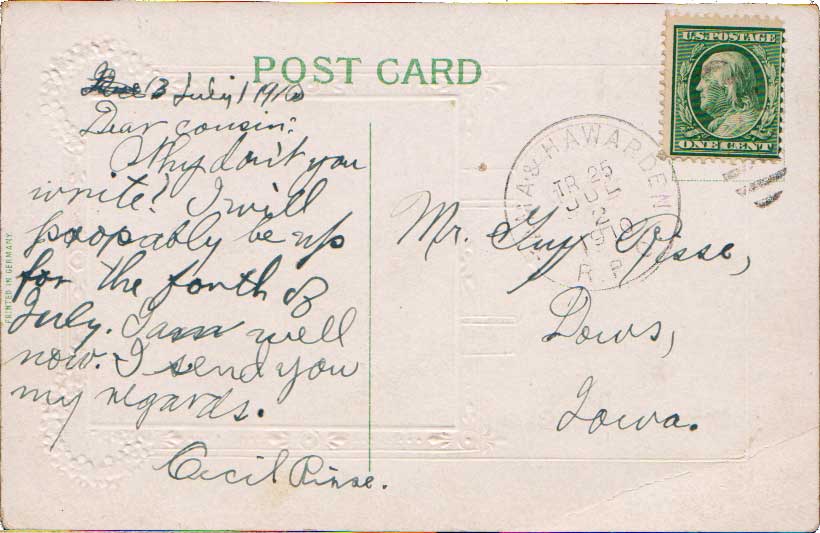 POST CARD
U.S. POSTAGE
ONE CENT
& HAWARDEN
TR 25
JUL
2
1910
R P
PRINTED IN GERMANY
July 1 1910
Dear cousin:
Why don't you
write? I will
propably be up
for the forth of
July. I am well
now. I send you
my regards.
Cecil Risse.
Mr. Guy Risse,
Dows,
Iowa.